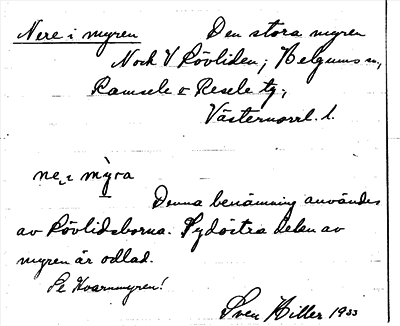 Nere i myren Den stora myren
N och V Rövliden; Helgums sn,
Ramsele o Resele tg.,
Västernorrl. l.
ne₂ ı mỳra
Denna benämning användes
av Rövlidsborna. Sydöstra delen av
myren är odlad.
Se Kvarnmyren!
Sven Hiller 1933